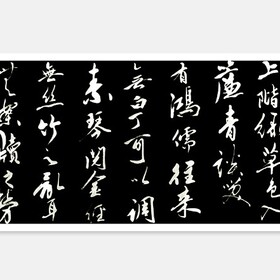 上階綠草色入
簾青談笑
有鴻儒往來
無白丁可以調
素琴閱金經
無絲竹之亂耳
無案牘之勞